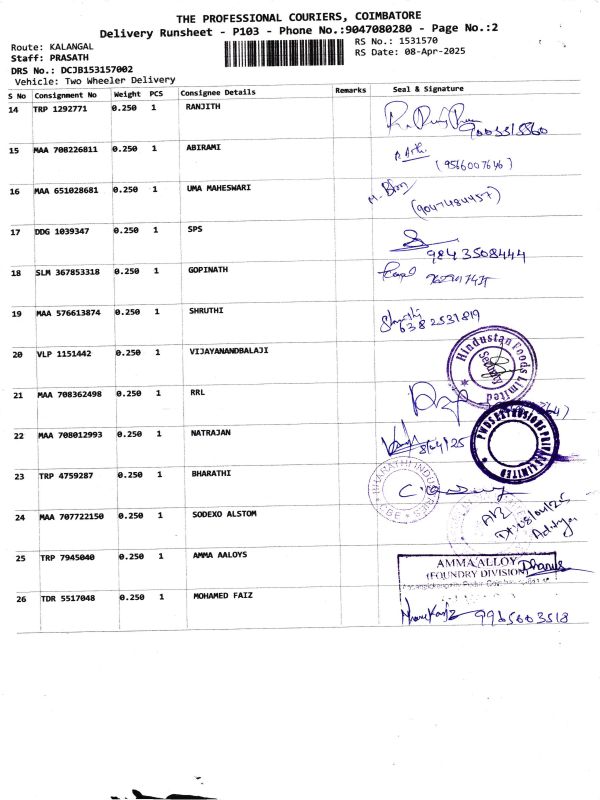 THE PROFESSIONAL COURIERS, COIMBATORE
Delivery Runsheet - P103 - Phone No.:9047080280 - Page No.:2
Route: KALANGAL
RS No.: 1531570
Staff: PRASATH
RS Date: 08-Apr-2025
DRS No.: DCJB153157002
Vehicle: Two Wheeler Delivery
S No Consignment No Weight PCS Consignee Details Remarks Seal & Signature
14 TRP 1292771 0.250 1 RANJITH
15 MAA 708226811 0.250 1 ABIRAMI
(9566007646)
16 MAA 651028681 0.250 1 UMA MAHESWARI
(9047484457)
17 DDG 1039347 0.250 1 SPS
9843508444
18 SLM 367853318 0.250 1 GOPINATH
19 MAA 576613874 0.250 1 SHRUTHI
Shruthi
6382531819
20 VLP 1151442 0.250 1 VIJAYANANDBALAJI
Hindustan Foods Limited
Security
21 MAA 708362498 0.250 1 RRL
22 MAA 708012993 0.250 1 NATRAJAN
8/04/25
PRIVATE LIMITED
23 TRP 4759287 0.250 1 BHARATHI
BHARATHI INDUSTRIES
CBE
24 MAA 707722150 0.250 1 SODEXO ALSTOM
Dt:08/04/25
Aditya
25 TRP 7945040 0.250 1 AMMA AALOYS
AMMA ALLOY
(FOUNDRY DIVISION)
26 TDR 5517048 0.250 1 MOHAMED FAIZ
9965603518